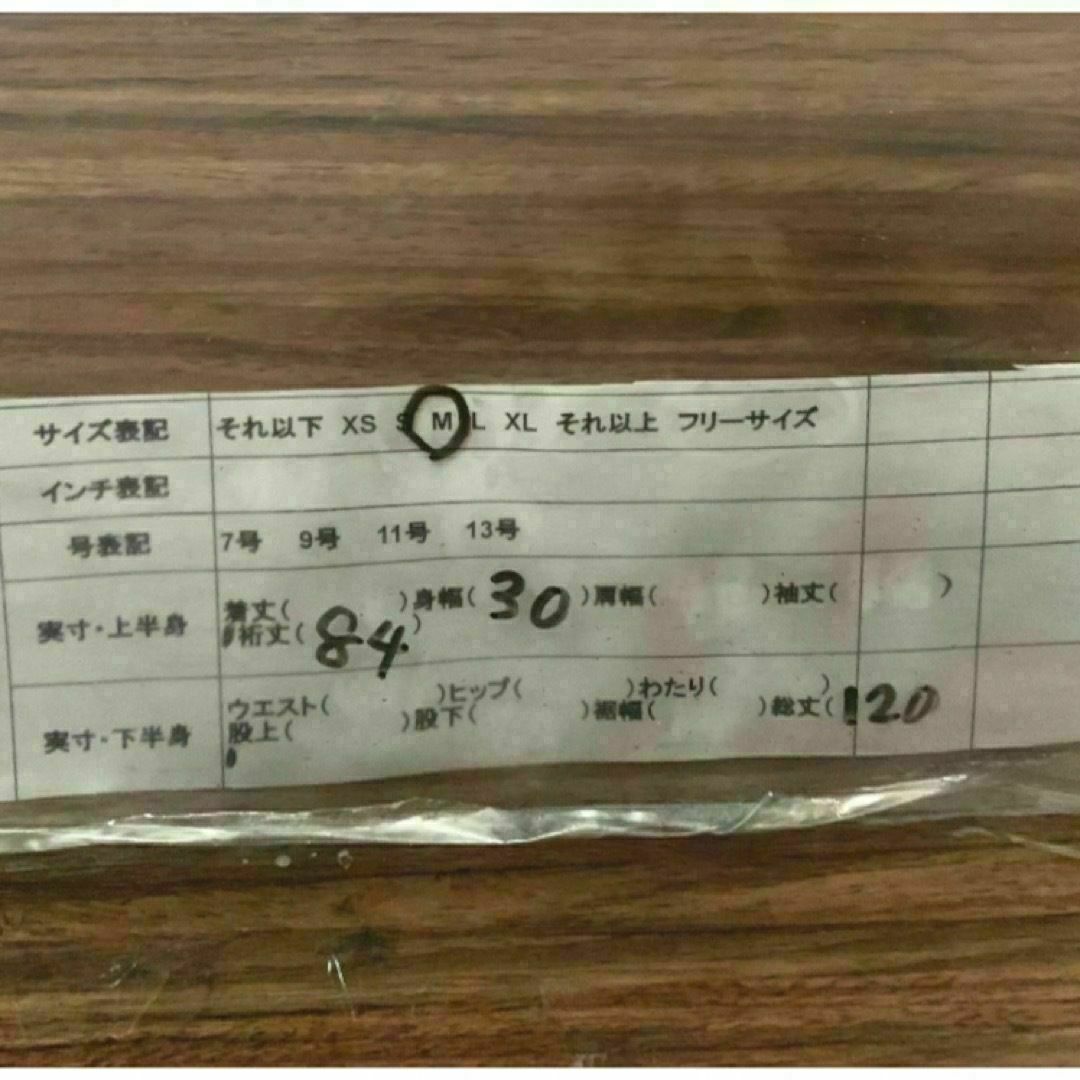 サイズ表記 それ以下 XS S M L XL それ以上 フリーサイズ
インチ表記
号表記 7号 9号 11号 13号
実寸・上半身 着丈( )身幅( 30 )肩幅( )袖丈( )
裄丈( 84 )
実寸・下半身 ウエスト( )ヒップ( )わたり( )
股上( )股下( )裾幅( )総丈( 120